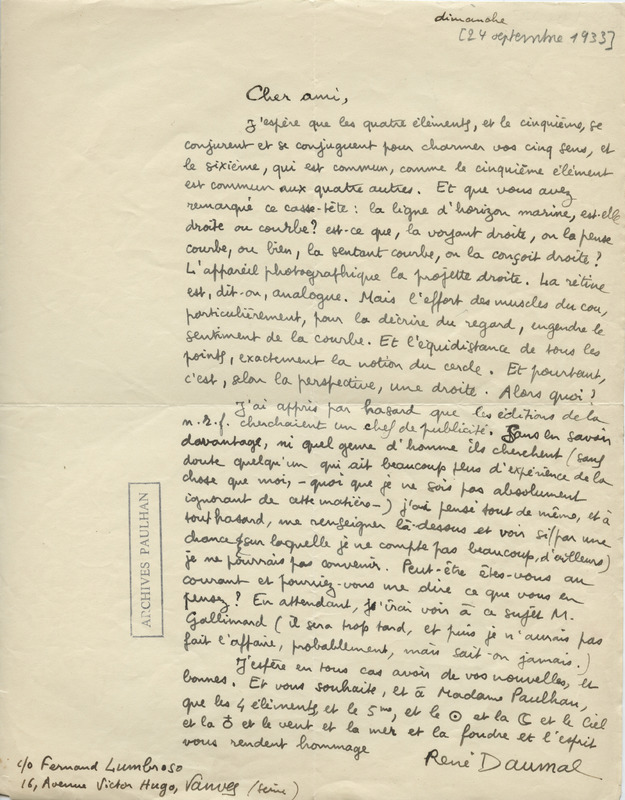 dimanche
[24 septembre 1933]
Cher ami,
J'espère que les quatre éléments, et le cinquième, se
conjurent et se conjuguent pour charmer vos cinq sens, et
le sixième, qui est commun, comme le cinquième élément
est commun aux quatre autres. Et que vous avez
remarqué ce casse-tête : la ligne d'horizon marine, est-elle
droite ou courbe? est-ce que, la voyant droite, on la pense
courbe, ou bien, la sentant courbe, on la conçoit droite?
L'appareil photographique la projette droite. La rétine
est, dit-on, analogue. Mais l'effort des muscles du cou,
particulièrement, pour la décrire du regard, engendre le
sentiment de la courbe. Et l'équidistance de tous les
points, exactement la notion du cercle. Et pourtant,
c'est, selon la perspective, une droite. Alors quoi?
J'ai appris par hasard que les éditions de la
n.r.f. cherchaient un chef de publicité. Sans en savoir
davantage, ni quel genre d'homme ils cherchent (sans
doute quelqu'un qui ait beaucoup plus d'expérience de la
chose que moi, - quoi que je ne sois pas absolument
ignorant de cette matière -) j'ai pensé tout de même, et à
tout hasard, me renseigner là-dessus et voir si (par une
chance sur laquelle je ne compte pas beaucoup, d'ailleurs)
je ne pourrais pas convenir. Peut-être êtes-vous au
courant et pourriez-vous me dire ce que vous en
pensez? En attendant, j'irai voir à ce sujet M.
Gallimard (il sera trop tard, et puis je n'aurais pas
fait l'affaire, probablement, mais sait-on jamais.)
J'espère en tous cas avoir de vos nouvelles, et
bonnes. Et vous souhaite, et à Madame Paulhan,
que les 4 éléments, et le 5me, et le ☉ et la ☾ et le Ciel
et la ♁ et le vent et la mer et la foudre et l'esprit
vous rendent hommage
René Daumal
c/o Fernand Lumbroso
16, Avenue Victor Hugo, Vanves (Seine)
ARCHIVES PAULHAN